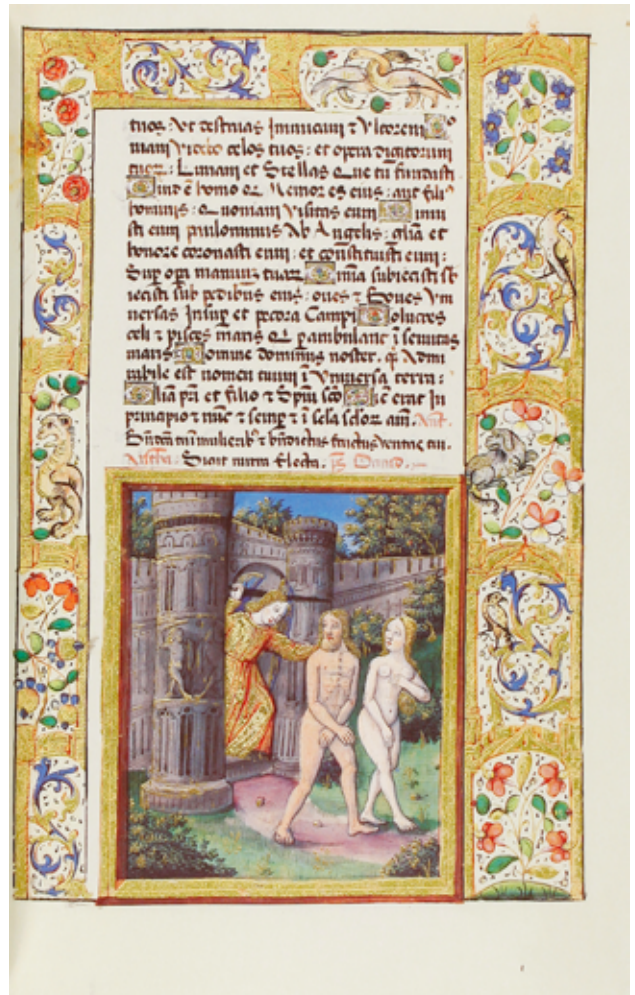 tuos: Ut destruas Inimicum ⁊ Ultorem Quo
niam Video celos tuos: et opera digitorum
tuor: Lunam et Stellas Que tu fundasti
Quid ē homo Q Memor es eius: aut fili9
hominis: Quoniam Visitas eum Minui
sti eum paulominus Ab Angelis: gliā et
honore coronasti eum: et cōstituisti eum:
Sup opa manuuz tuar Omīa subiecisti sb
iecisti sub pedibus eius: oves ⁊ Boves Vni
versas Insup et pecora Campi Volucres
celi ⁊ pisces maris Q pambulant ī semitas
maris Domine dominus noster. q̄ Admi
rabile est nomen tuum ī Vniversa terra:
Glīa pri et filio ⁊ Spui sco Sic erat In
principio ⁊ nūc ⁊ semp ⁊ ī scla sclor am. Ant.
mulierib9 ⁊ bndictus fructus ventris tui.
Antha. Sicut mirra Electa. ps David.